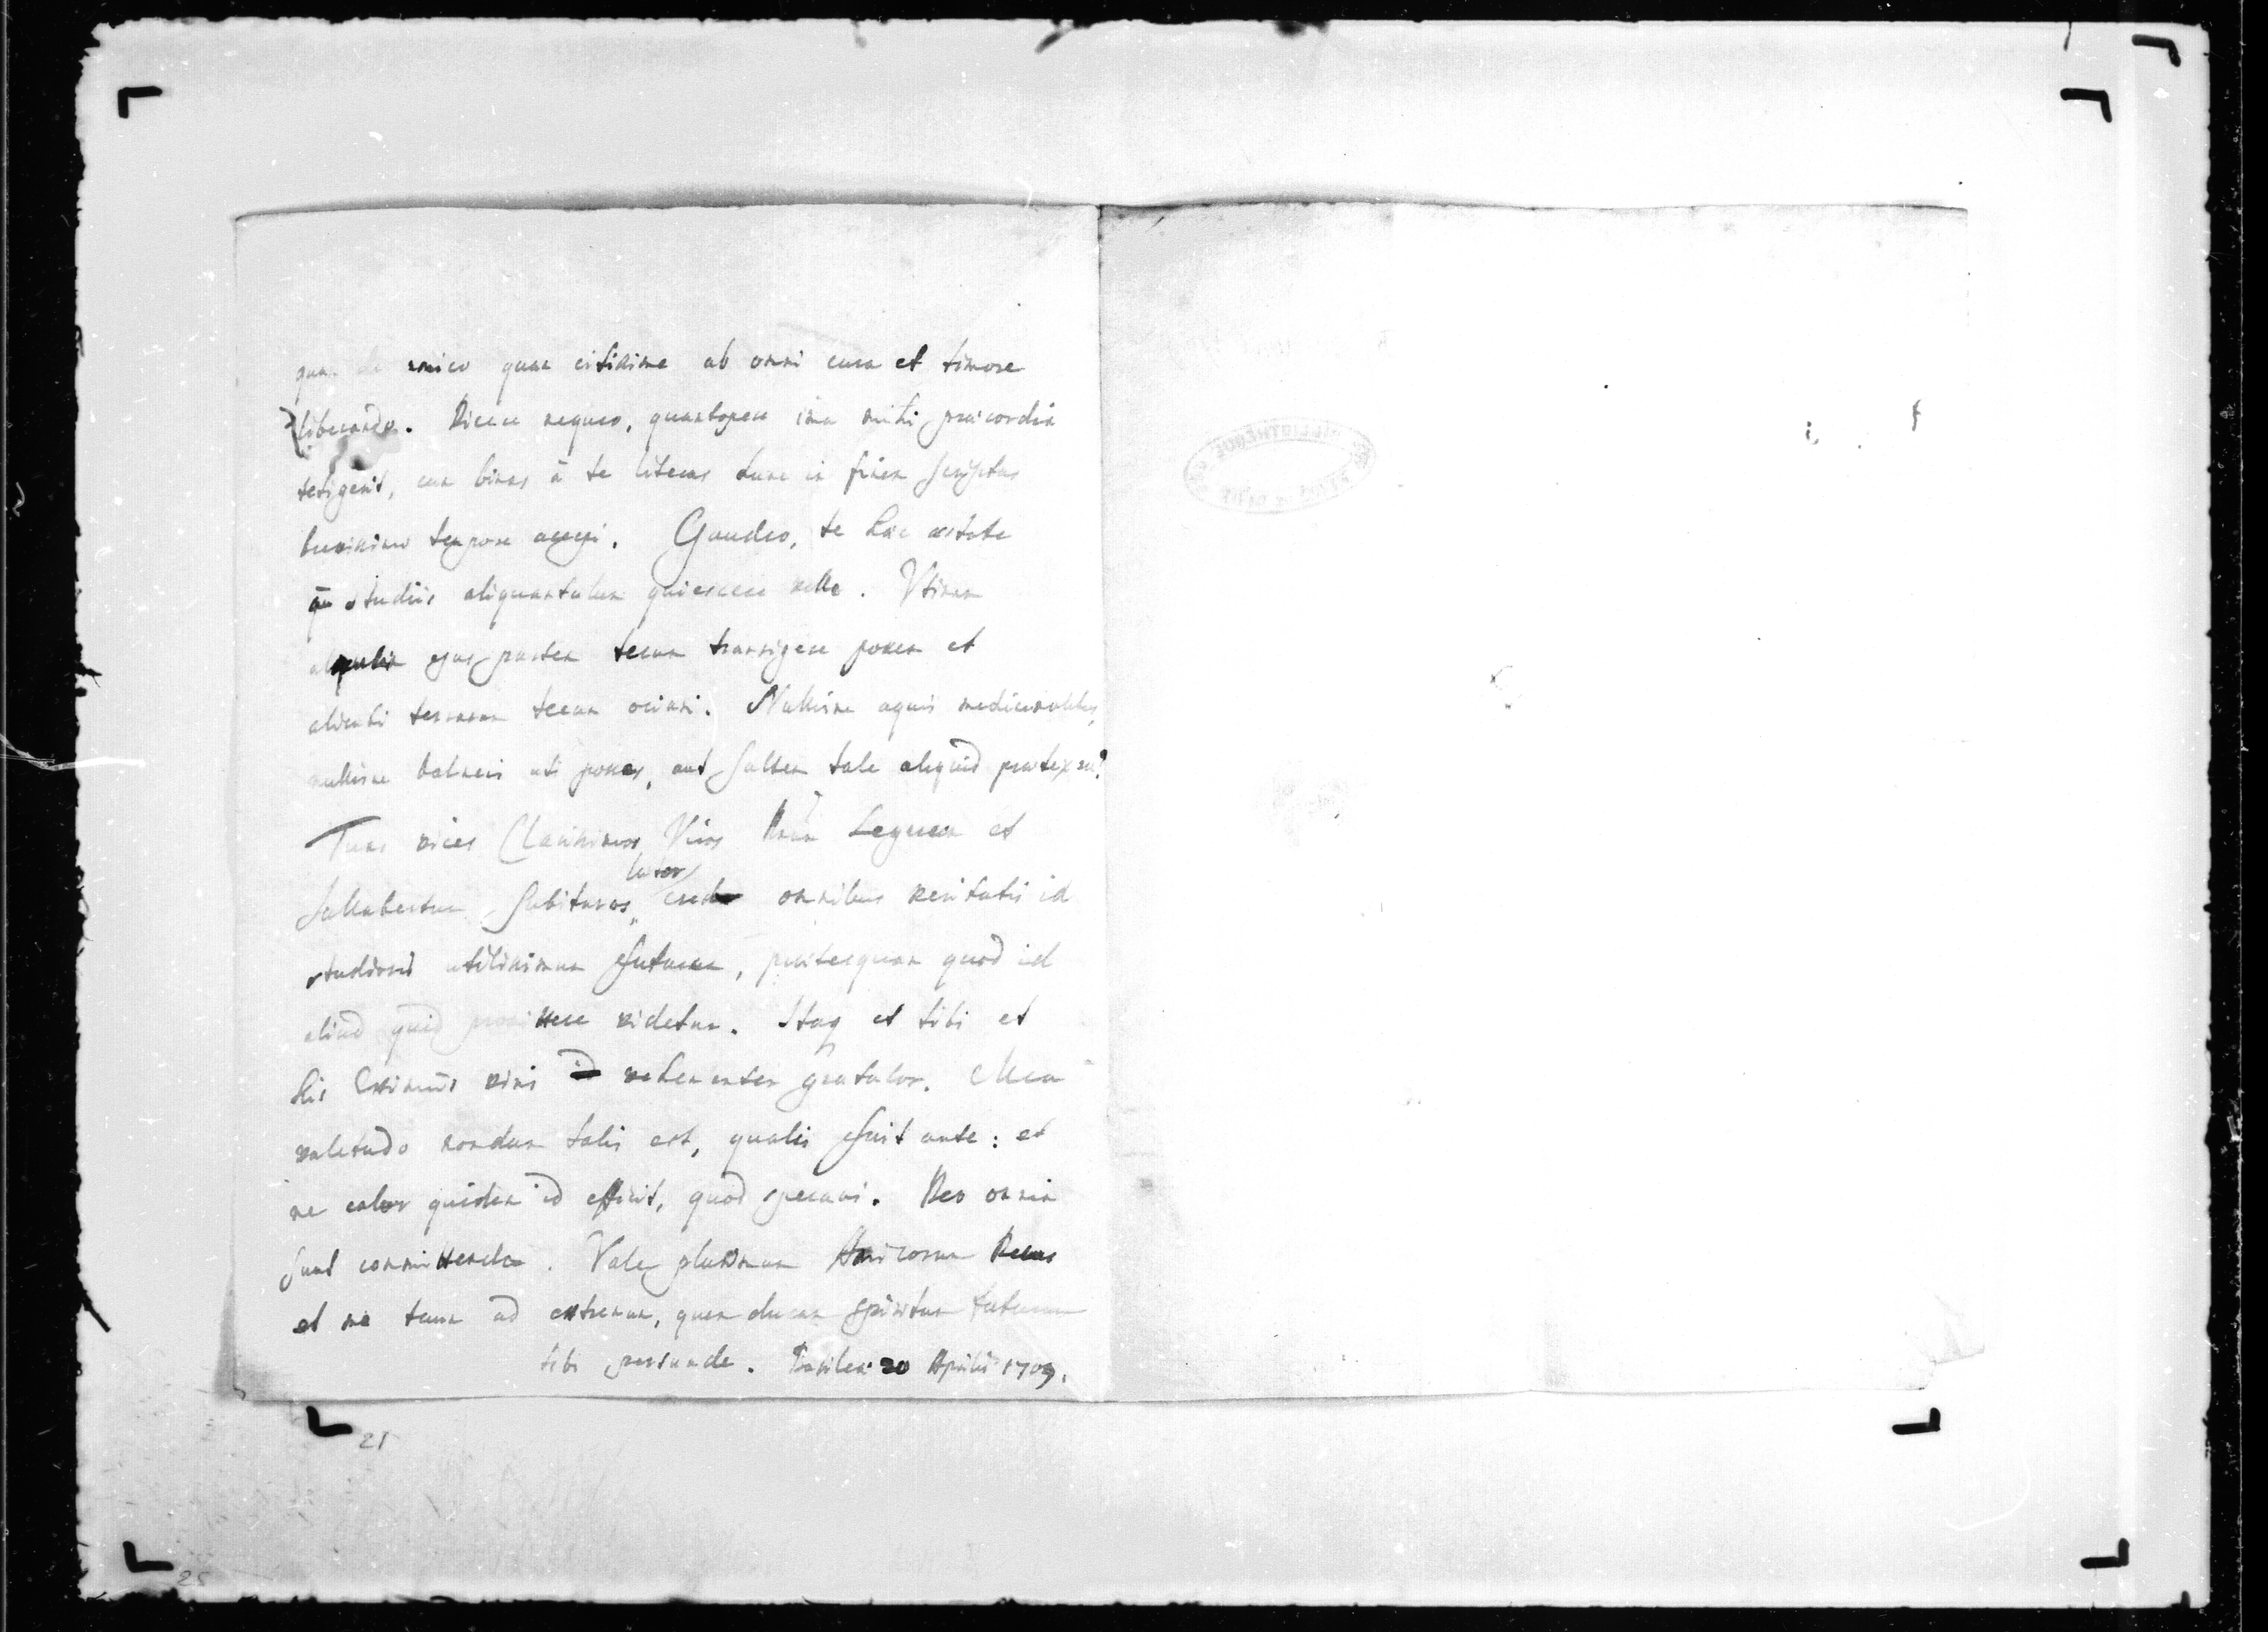 de amico quam citissime ab omni cura et timore
liberando. Dicere nequeo, quantopere ima mihi praecordia
tetigerit, cum binas à te literas tunc in finem scriptas
brevissimo tempore accepi. Gaudeo, te hac aestate
studiis aliquantulum quiescere velle. Vtinam
ejus partem tecum transigere possem et
alicubi terrarum tecum ociari. Nullisne aquis medicinalibus,
nullisne balneis uti posses, aut saltem tale aliquid praetexere?
Tuas vices Clarissimos Viros Legueum et
Sallabertum subituros, lutor omnibus veritatis id
studiosis utilissimum futurum, praeterquam quod id
aliud quid promittere videtur. Itaq et tibi et
his Eximiis viris id vehementer gratulor. Mea
valetudo nondum talis est, qualis fuit ante: et
ne calor quidem id efficit, quod speravi. Deo omnia
sunt committenda. Vale plurimum Amicorum Decus
et me tuum ad extremum, quem ducam spiritum futurum
tibi persuade. Basileae 20 Aprilis 1709.
21
25